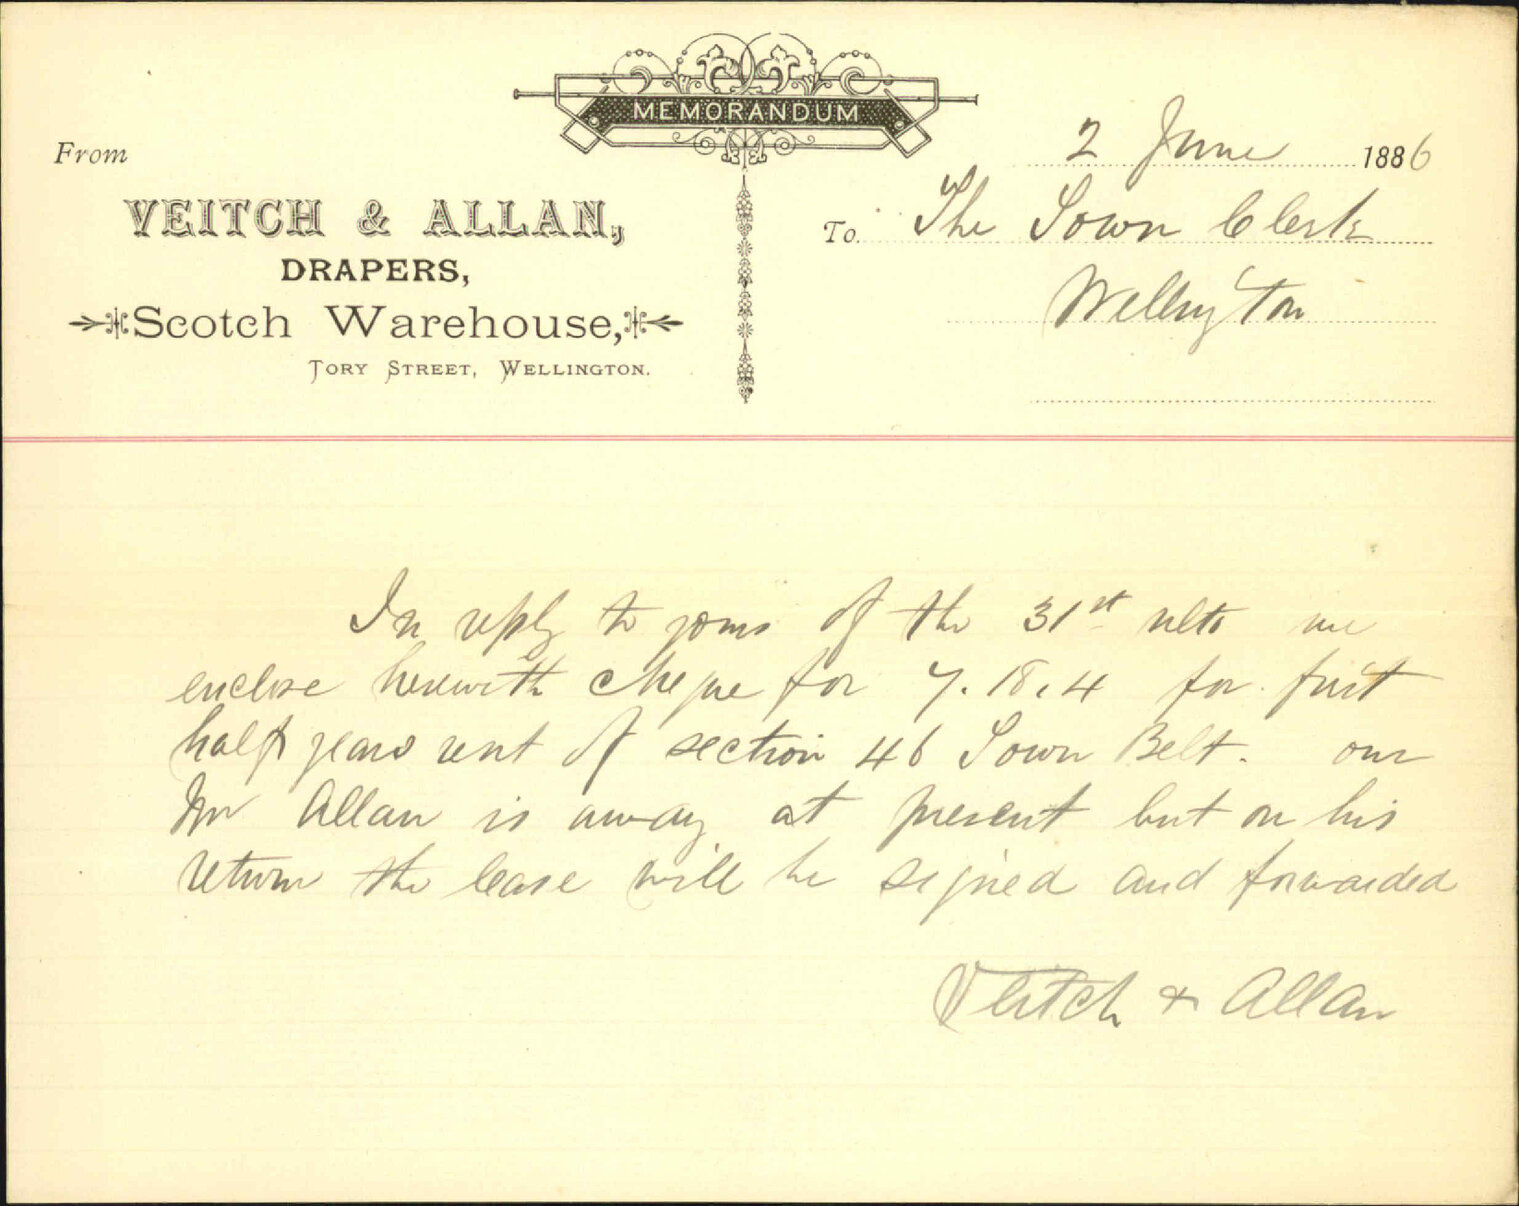 MEMORANDUM
From
VEITCH & ALLAN,
DRAPERS,
Scotch Warehouse,
TORY STREET, WELLINGTON.
2 June 1886
To. The Town Clerk
Wellington
In reply to yours of the 31st ulto we
enclose herewith cheque for 7.18.4 for first
half years rent of section 46 Town Belt. our
Mr Allan is away at present but on his
return the lease will be signed and forwarded
Veitch & Allan